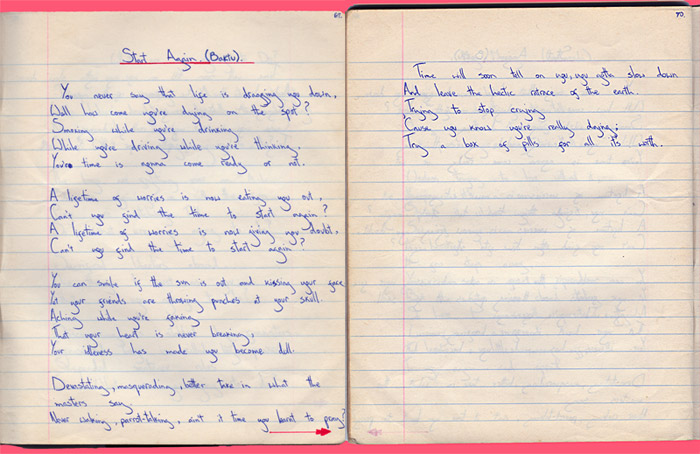 69.
Start Again. (Baktu).
You never say that life is dragging you down,
Well how come you're dying on the spot?
Smoking while you're drinking
While you're driving while you're thinking,
You're time is gonna come ready or not.
A lifetime of worries is now eating you out,
Can't you find the time to start again?
A lifetime of worries is now giving you doubt,
Can't you find the time to start again?
You can smile if the sun is out and kissing your face
Yet your friends are throwing punches at your skull.
Aching while you're faking
That your heart is never breaking,
Your illness has made you become dull.
Devastating, masquerading, better take in what the
masters say.
Never walking, parrot-talking, ain't it time you learnt to pray?
70.
Time will soon tell on you, you gotta slow down
And leave the hectic ratrace of the earth.
Trying to stop crying
'Cause you know you're really dying;
Try a box of pills for all it's worth.